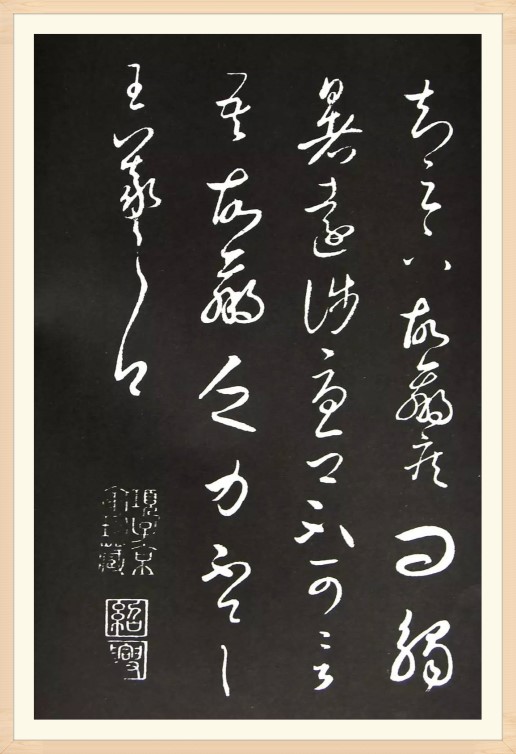 知足下故羸疾而觸
暑遠涉憂卿不可言
吾故羸乏力不具
王羲之白
項子京
家珍藏
紹興